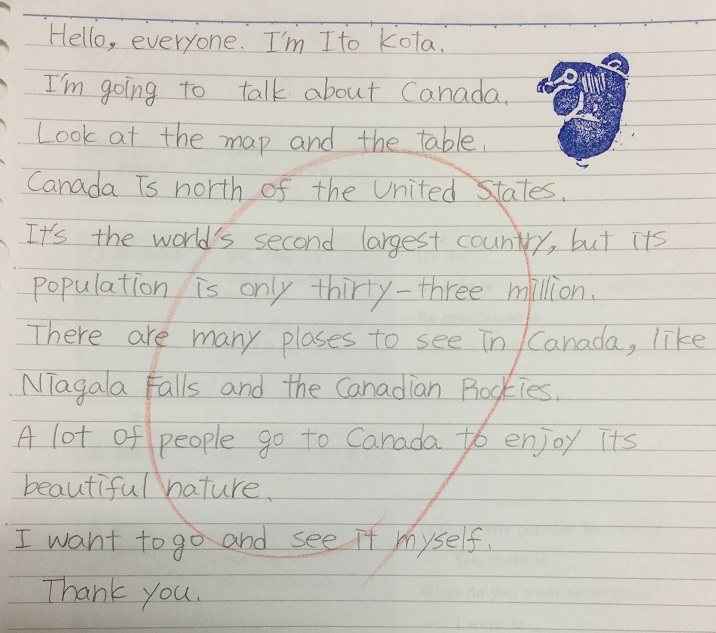 Hello, everyone. I'm Ito Kota.
I'm going to talk about Canada.
Look at the map and the table.
Canada is north of the United States.
It's the world's second largest country, but its
population is only thirty-three million.
There are many plases to see in Canada, like
Niagala Falls and the Canadian Rockies.
A lot of people go to Canada to enjoy its
beautiful nature.
I want to go and see it myself.
Thank you.